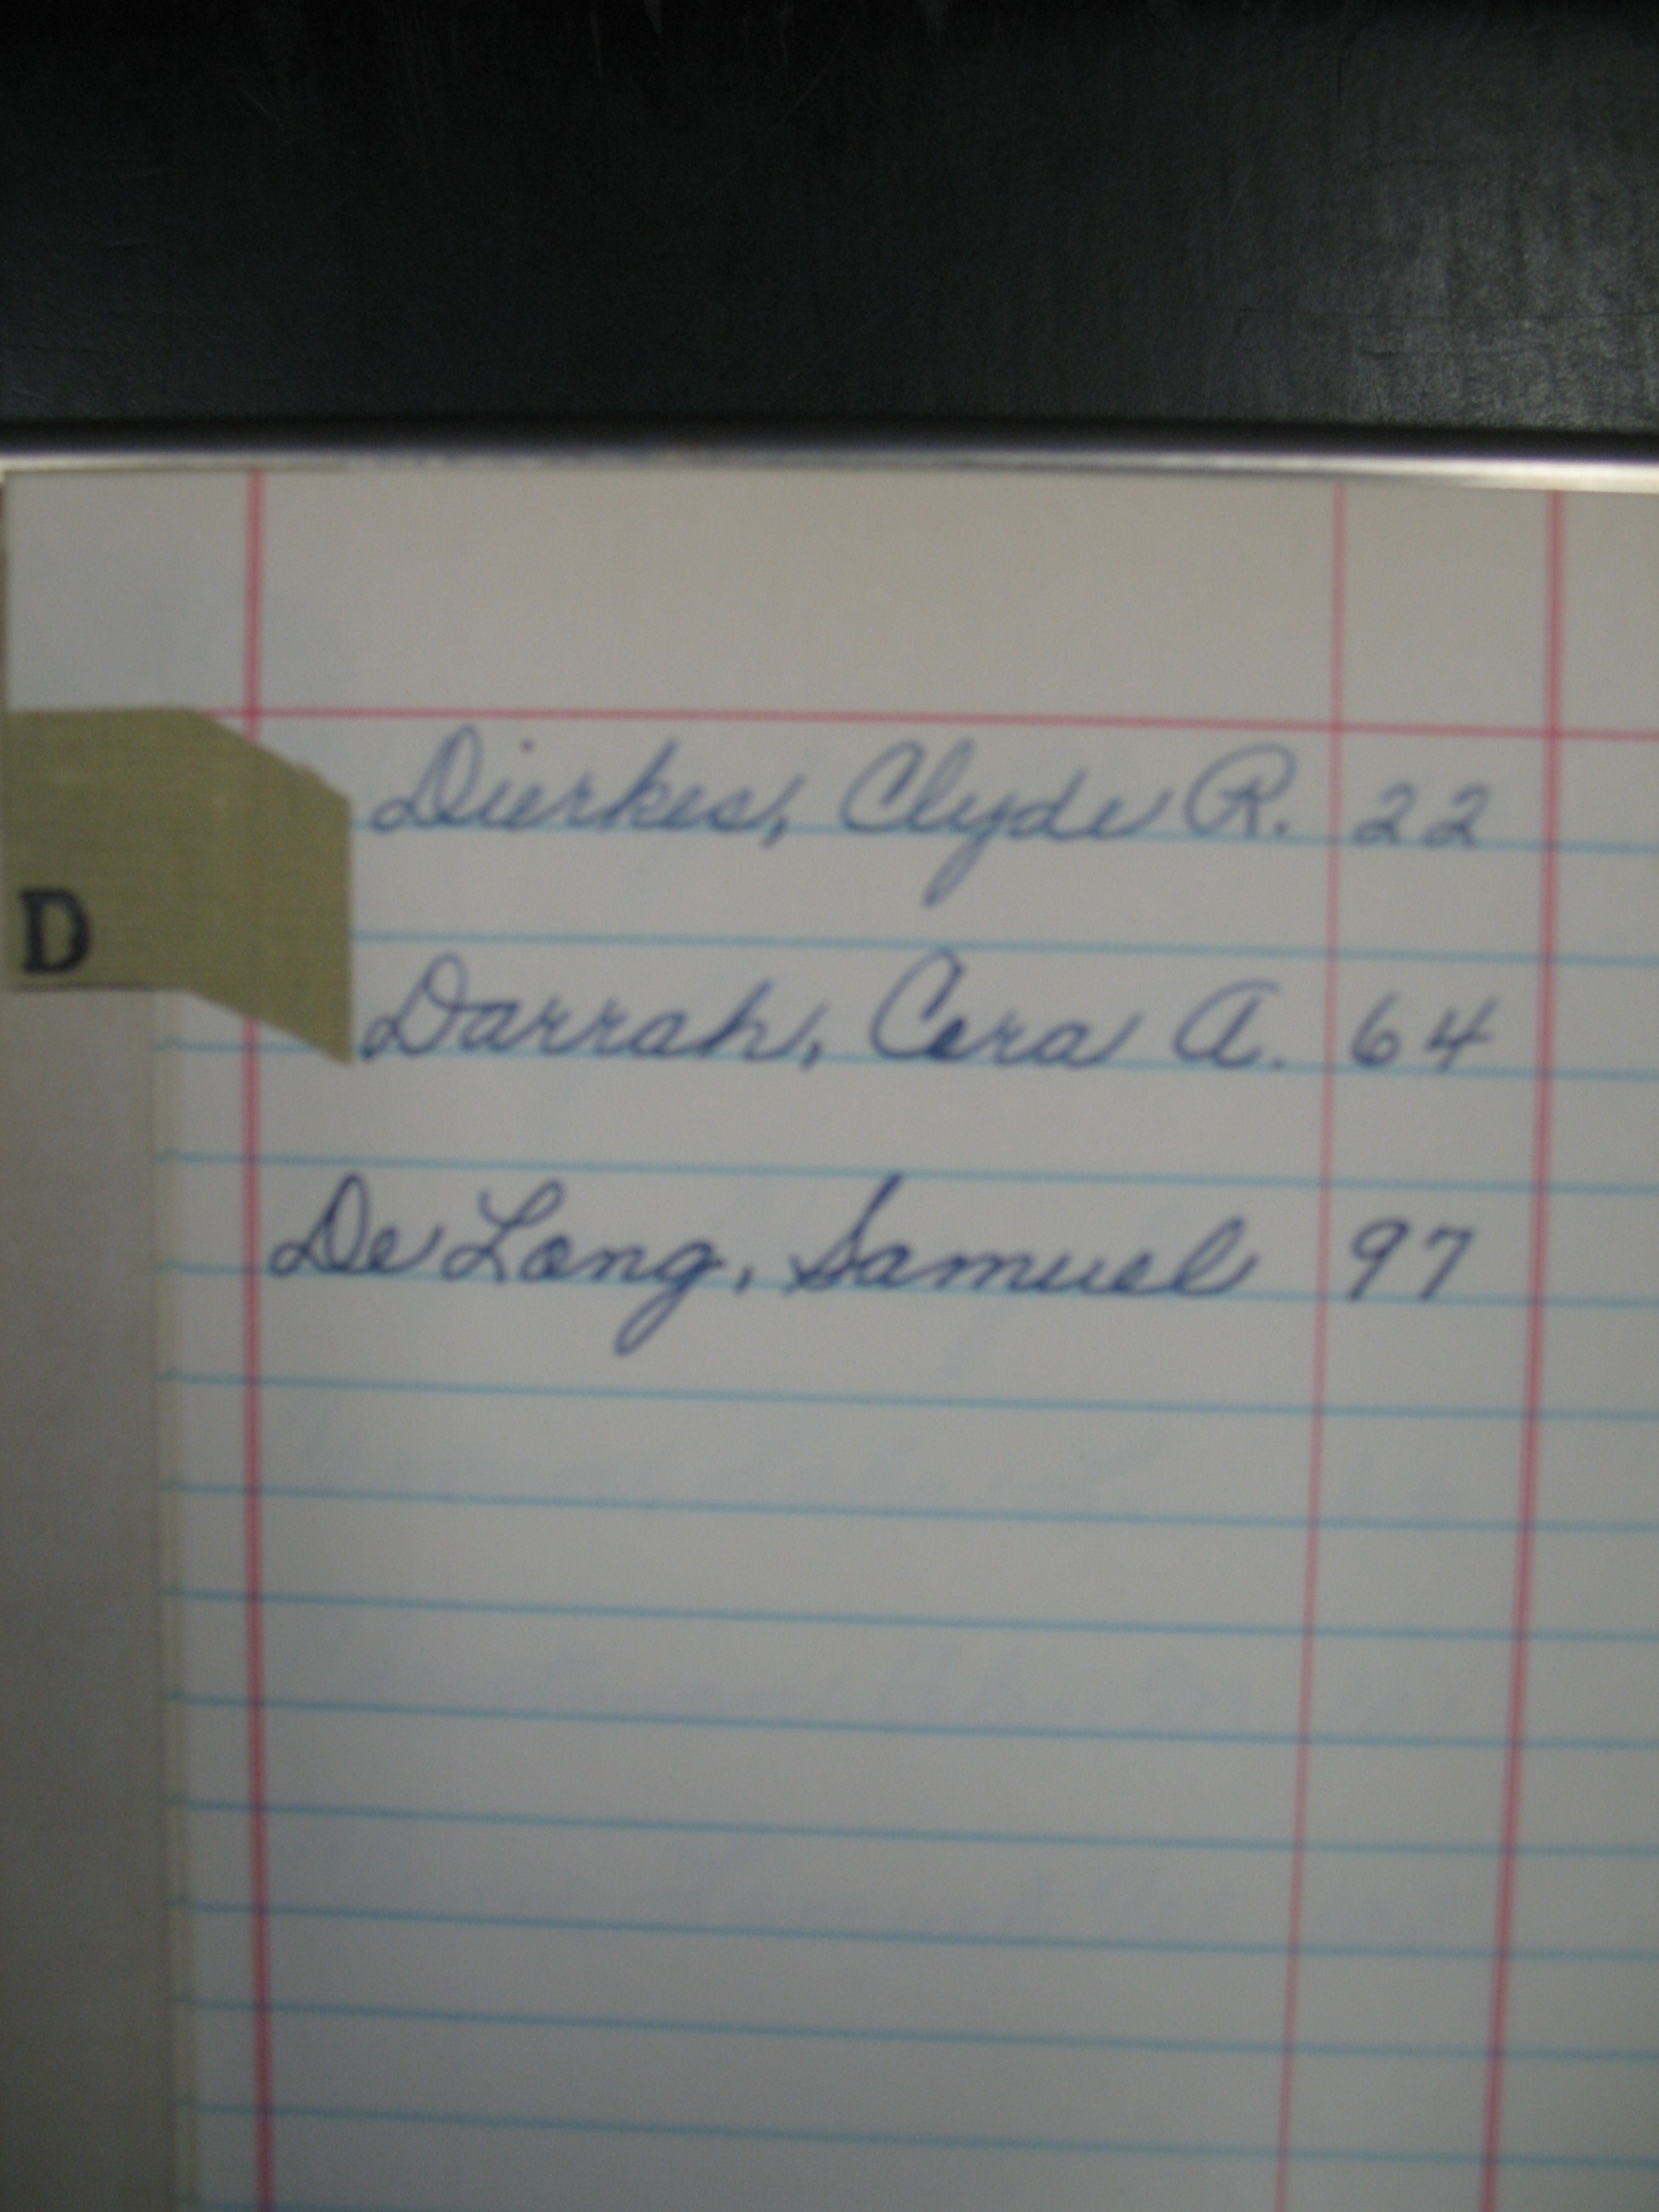 Dierkes, Clyde R. 22
D
Darrah, Cora A. 64
De Long, Samuel 97